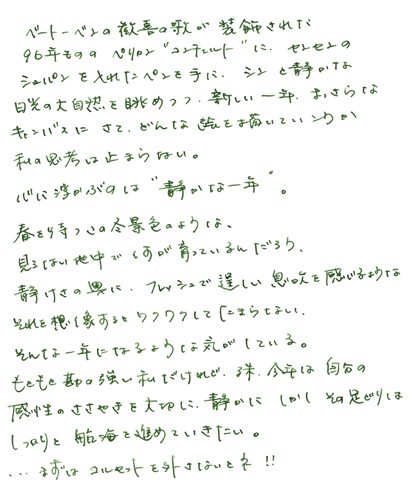 ベートーベンの歓喜の歌が装飾された
96年もののペリカン"コンチェルト"に、センセンの
シュパンを入れたペンを手に、シンと静かな
日光の大自然を眺めつつ、新しい一年、まっさらな
キャンバスに さて、どんな絵を描いていこうか
私の思考は止まらない。
心に浮かぶのは "静かな一年"。
春を待つこの冬景色のような、
見えない地中で 芽が育っているんだろう、
静けさの奥に、フレッシュで逞しい息吹を感じるような
それを想像するとワクワクしてたまらない、
そんな一年になるような気がしている。
もともと勘の強い私だけれど、殊、今年は自分の
感性のささやきを大切に、静かに しかし その足どりは
しっかりと 航海を進めていきたい。
… まずは コルセットを外さないとネ !!